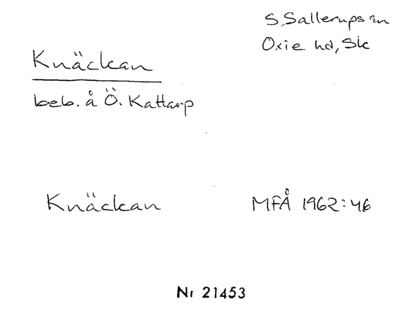 S. Sallerups sn
Oxie hd, Sk
Knäckan
beb. å Ö. Kattarp
Knäckan MFÅ 1962:46
Nr 21453